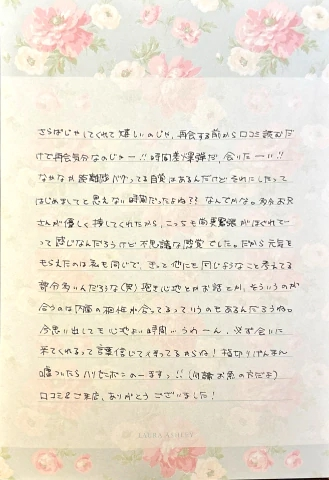 さらばじゃしてくれて嬉しいのじゃ、再会する前から口コミ読むだ
けで再会気分なのじゃー!!時間差爆弾だ、会いたーい!!
なかなか距離感バグってる自覚はあるんだけどそれにしたって
はじめましてと思えない時間だったよね??なんでかな。多分お兄
さんが優しく接してくれたから、こっちも尚更緊張がほぐれてー
って感じなんだろうけど不思議な感覚でした。だから元気を
もらえたのは私も同じで、きっと他にも同じようなこと考えてる
部分多いんだろうな(笑)抱き心地とかお話とか、そういうのが
合うのは内面の相性が合ってるっていうのもあるんだろうね。
今思い出しても心地よい時間…うわーん、必ず会いに
来てくれるって言葉信じて待ってるからね!指切りげんまん
嘘ついたらハリセンボンのーますっ!!(勿論お魚の方だよ)
口コミ&ご来店、ありがとうございました!
LAURA ASHLEY